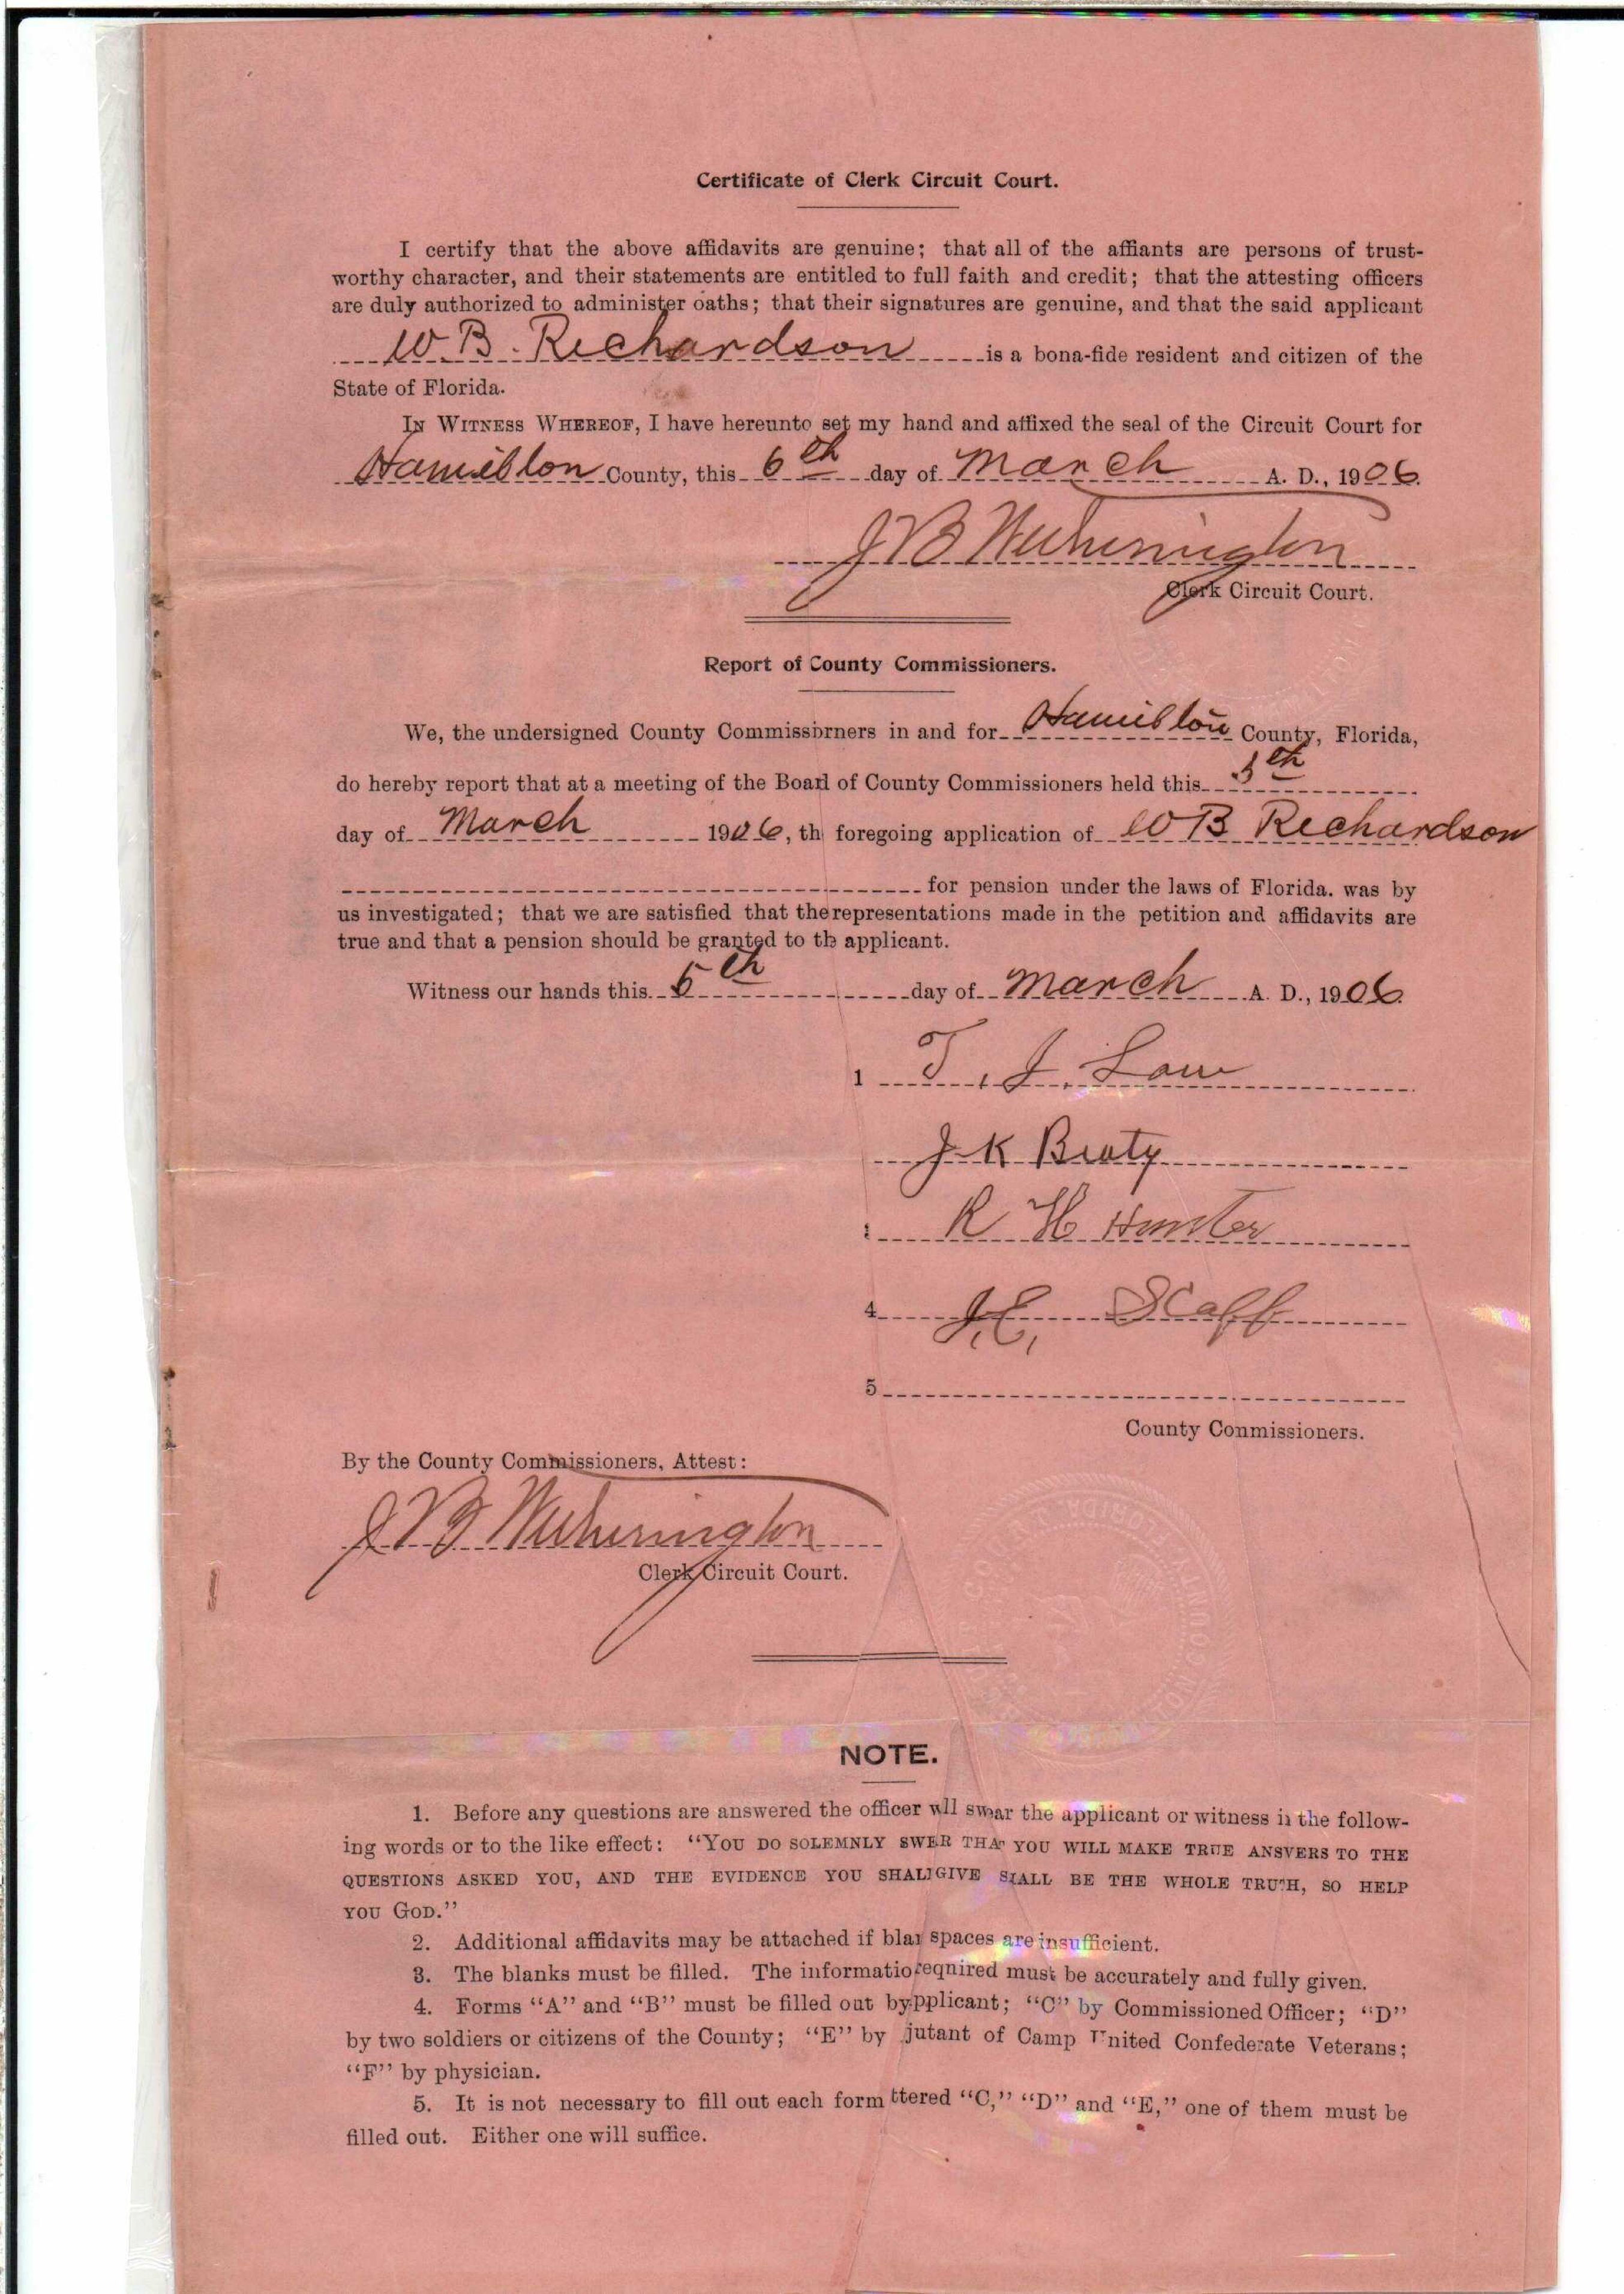 Certificate of Clerk Circuit Court.
I certify that the above affidavits are genuine; that all of the affiants are persons of trust-
worthy character, and their statements are entitled to full faith and credit; that the attesting officers
are duly authorized to administer oaths; that their signatures are genuine, and that the said applicant
W. B. Richardson is a bona-fide resident and citizen of the
State of Florida.
IN WITNESS WHEREOF, I have hereunto set my hand and affixed the seal of the Circuit Court for
Hamilton County, this 6th day of March A. D., 1906.
J B Witherington
Clerk Circuit Court.
Report of County Commissioners.
We, the undersigned County Commissirners in and for Hamilton County, Florida,
do hereby report that at a meeting of the Board of County Commissioners held this 5th
day of March 1906, th foregoing application of W B Richardson
for pension under the laws of Florida. was by
us investigated; that we are satisfied that the representations made in the petition and affidavits are
true and that a pension should be granted to th applicant.
Witness our hands this 5th day of March A. D., 1906.
1 T. J. Law
J K Beaty
R H Hunter
4 J. E. Scaff
5
County Commissioners.
By the County Commissioners, Attest:
J B Witherington
Clerk Circuit Court.
COUNTY FLORIDA
NOTE.
1. Before any questions are answered the officer wll swear the applicant or witness in the follow-
ing words or to the like effect: "YOU DO SOLEMNLY SWER THAT YOU WILL MAKE TRUE ANSVERS TO THE
QUESTIONS ASKED YOU, AND THE EVIDENCE YOU SHALL GIVE SHALL BE THE WHOLE TRUTH, SO HELP
YOU GOD."
2. Additional affidavits may be attached if blan spaces are insufficient.
3. The blanks must be filled. The informatio reqnired must be accurately and fully given.
4. Forms "A" and "B" must be filled out by pplicant; "C" by Commissioned Officer; "D"
by two soldiers or citizens of the County; "E" by jutant of Camp United Confederate Veterans;
"F" by physician.
5. It is not necessary to fill out each form ttered "C," "D" and "E," one of them must be
filled out. Either one will suffice.